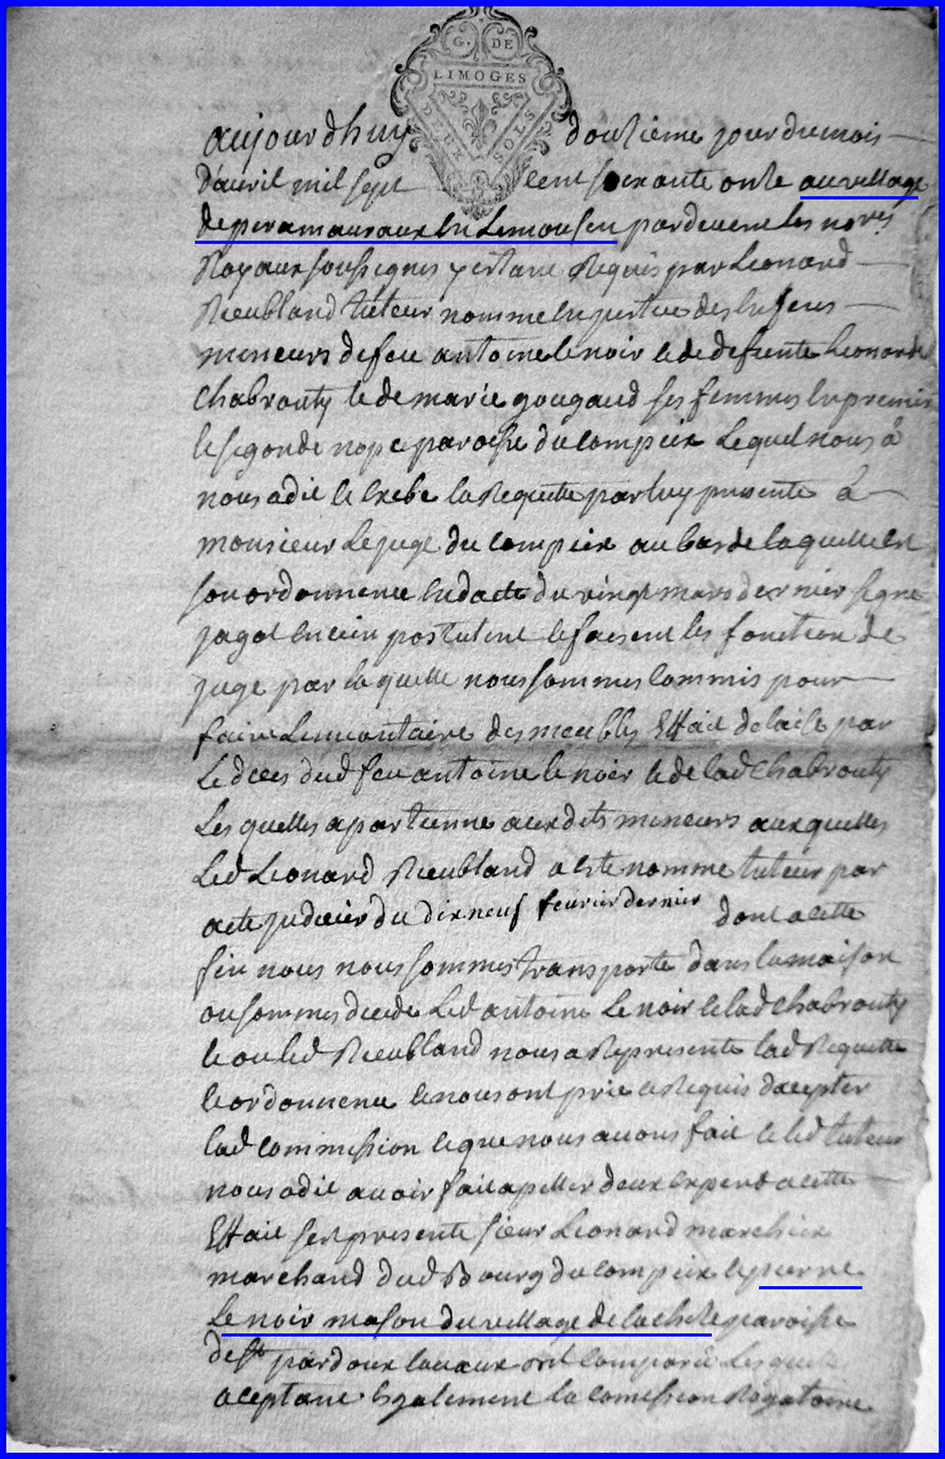 G. DE
LIMOGES
DEUX SOLS
aujourdhuy douzieme jour du mois
d'avril mil sept cent soixante onze au village
de peramauraux en Limousin pardevent les nores
Royaux soussignes y estant Requis par Leonard
Rieubland tuteur nomme en justice des enfens
mineurs de feu antoine lenoir et de defunte Leonarde
Chabrouty et de marie gougaud ses femmes en premie
le segonde nopce paroisse du compeix Lequel nous à
nous a dit et exebe la Requette par luy presente à
monsieur Le juge du compeix au bas de laquelle est
son ordonnence en dacte du vingt mars dernier signe
jagot encien postulent et faisent les fonction de
juge par laquelle nous sommes commis pour
faire Linventaire des meubles Effait delaice par
Le deces dud feu antoine lenoir et de lad Chabrouty
Les quelles apartienne auxdits mineurs auxquelles
Led Leonard Rieubland a este nomme tuteur par
acte judicier du dixneuf fevrier dernier dont a cette
fin nous nous sommes transporte dans la maison
ou sommes decede Led antoine Lenoir et lad Chabrouty
et ou led Rieubland nous a Represente lad Requette
et ordonnence et nous ont prie et Requis dacepter
lad commission ce que nous avons fait et led tuteur
nous a dit avoir fait apeller deux expert a cette
Effait sest presente sieur Leonard marchieix
marchand dud Bourg du compeix et pierre
Lenoir mason du village de la chize paroisse
de st pardoux lavaux ont comparu Lesquelle
aceptant Egalement la comission Rogatoire